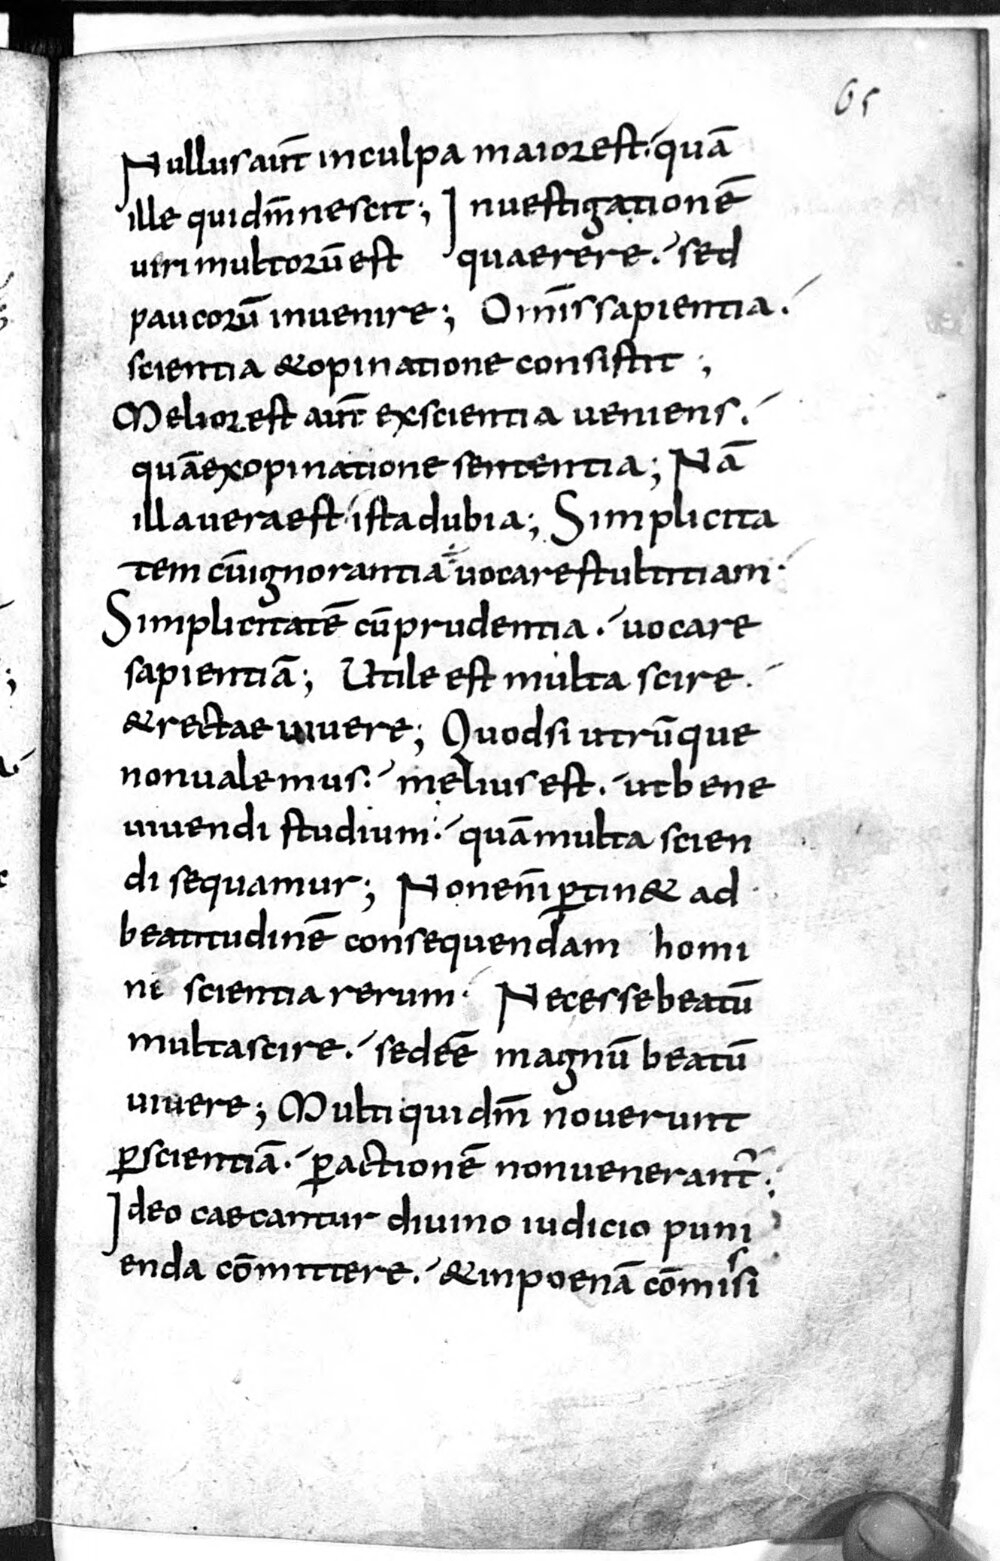 65
Nullus aut̄ inculpa maior est. quā
ille qui dm̄ nescit; Investigationē
uiri multorū est quaerere. sed
paucorū invenire; Omīs sapientia.
scientia & opinatione consistit;
Melior est aut̄ exscientia ueniens.
quā exopinatione sententia; Nā
illa uera est. ista dubia; Simplicita
tem cū ignorantia uocare stultitiam.
Simplicitatē cū prudentia. uocare
sapientiā; Utile est multa scire.
& rectae uiuere; Quodsi utrūque
non ualemus. melius est. ut bene
uiuendi studium. quā multa scien
di sequamur; Non enī ꝑtin& ad
beatitudinē consequendam homi
ni scientia rerum. Necesse beatū
multa scire. sed eē magnū beatū
uiuere; Multi quidm̄ noverunt
ꝑ scientiā. ꝑ actionē non uenerant̄.
Ideo caecantur diuino iudicio puni
enda cōmittere. & in poenā cōmissi